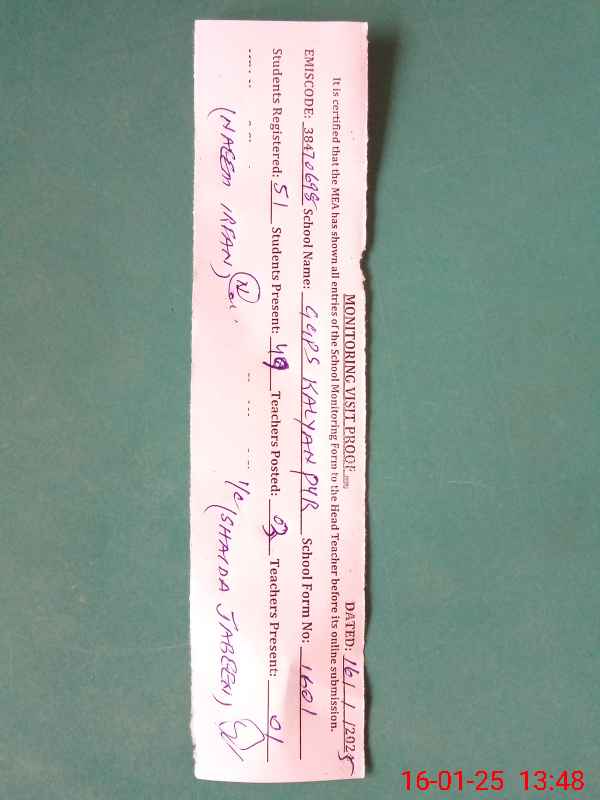 MONITORING VISIT PROOF DATED: 16/1/2025
It is certified that the MEA has shown all entries of the School Monitoring Form to the Head Teacher before its online submission.
EMISCODE: 38470698 School Name: GGPS KALYAN PUR School Form No: 1601
Students Registered: 51 Students Present: 49 Teachers Posted: 03 Teachers Present: 01
(NAEEM IRFAN) I/C (SHAIDA JABEEN)
16-01-25 13:48